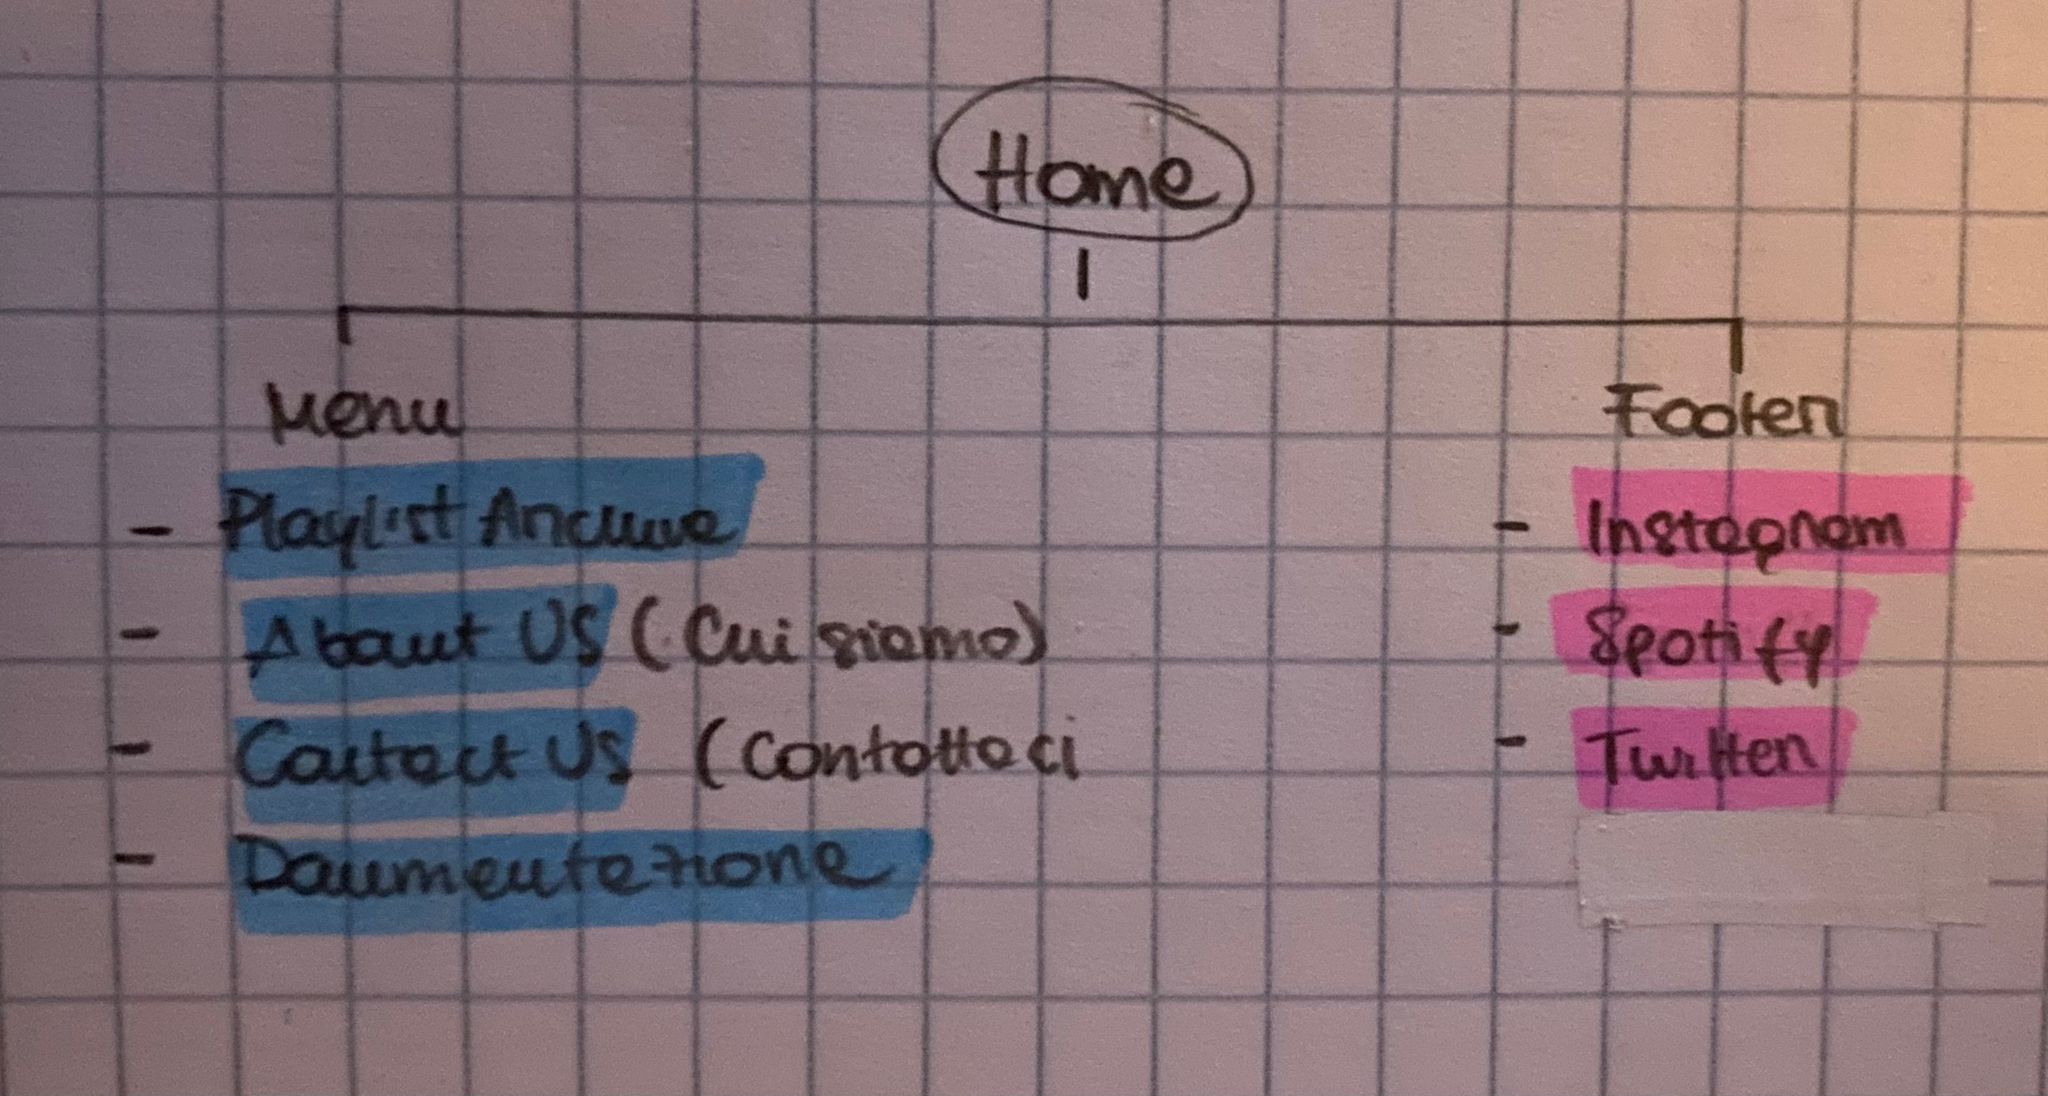 Home
Menu
Footer
- Playlist Archive
- About US (Chi siamo)
- Contact Us (Contattaci
- Documentazione
- Instagram
- Spotify
- Twitter